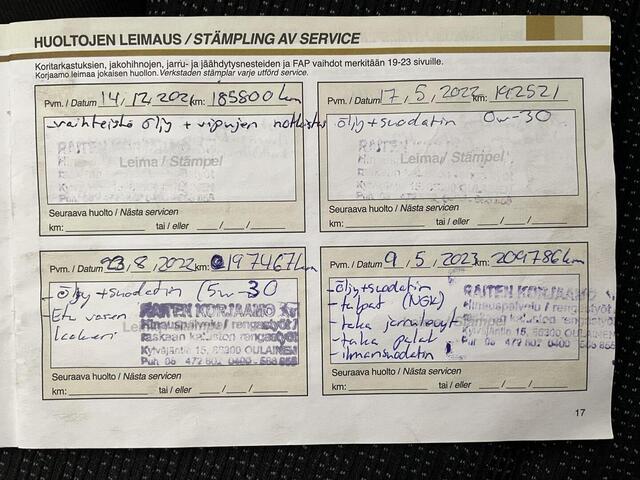 HUOLTOJEN LEIMAUS / STÄMPLING AV SERVICE
Koritarkastuksien, jakohihnojen, jarru- ja jäähdytysnesteiden ja FAP vaihdot merkitään 19-23 sivuille.
Korjaamo leimaa jokaisen huollon. Verkstaden stämplar varje utförd service.
Pvm. / Datum 14, 12, 202 km: 185800 km
-vaihteisto öljy + vipujen
RAITEN
Leima / Stämpel
Seuraava huolto / Nästa servicen
km: tai / eller / /
Pvm. / Datum 17, 5, 2022 km: 192521
öljy + suodatin 0w-30
RAITEN
Leima / Stämpel
Seuraava huolto / Nästa servicen
km: tai / eller / /
Pvm. / Datum 23, 8, 2022 km: 197467 km
- öljy + suodatin (5w-30
Etu
RAITEN KORJAAMO
Hinauspalvelu / rengastyöt /
raskaan kaluston rengastyöt
Kyväjäntie 15, 86300 OULAINEN
Puh 08 472 802 0400 - 586 856
Seuraava huolto / Nästa servicen
km: tai / eller / /
Pvm. / Datum 9, 5, 2023 km: 209786 km
-öljy+suodatin
- tulpat (NGK)
- taka
- taka palat
- ilmansuodatin
RAITEN KORJAAMO
Hinauspalvelu / rengastyöt
raskaan kaluston rengas
Kyväjäntie 15, 86300 OULAI
Puh 08 472 802 0400 - 586 856
Seuraava huolto / Nästa servicen
km: tai / eller / /
17